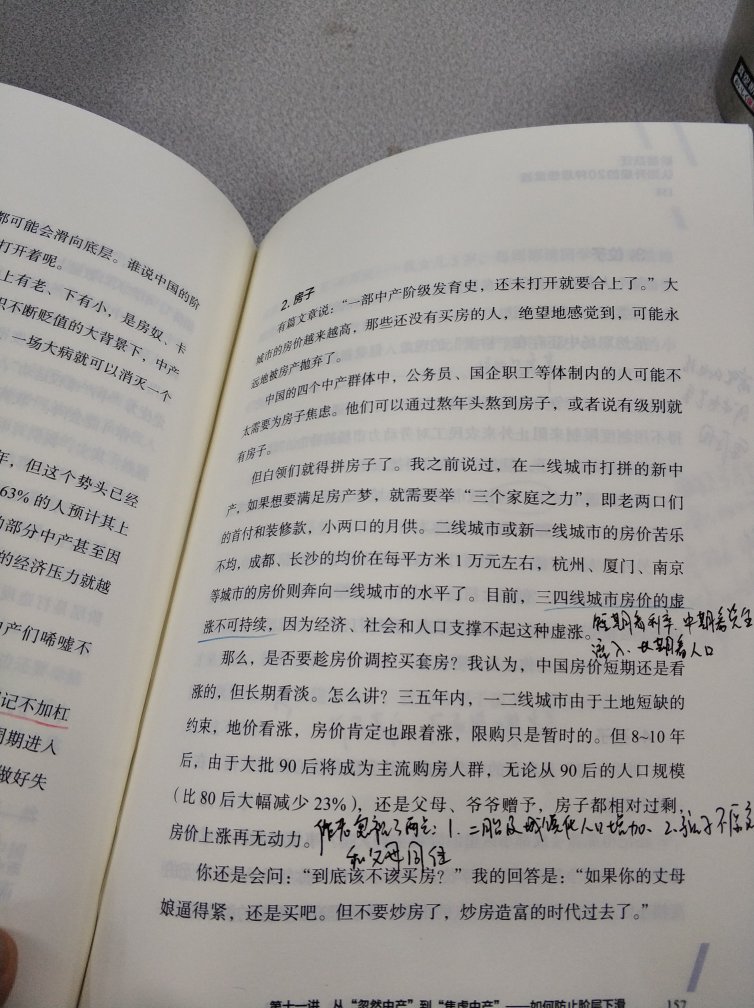 都可能会滑向底层。谁说中国的阶
打开着呢。
上有老、下有小，是房奴、卡
不断贬值的大背景下，中产
一场大病就可以消灭一个
年，但这个势头已经
63%的人预计其上
部分中产甚至因
的经济压力就越
产们唏嘘不
记不加杠
周期进入
做好失
2. 房子
有篇文章说：“一部中产阶级发育史，还未打开就要合上了。”大
城市的房价越来越高，那些还没有买房的人，绝望地感觉到，可能永
远地被房产抛弃了。
中国的四个中产群体中，公务员、国企职工等体制内的人可能不
太需要为房子焦虑。他们可以通过熬年头熬到房子，或者说有级别就
有房子。
但白领们就得拼房子了。我之前说过，在一线城市打拼的新中
产，如果想要满足房产梦，就需要举“三个家庭之力”，即老两口们
的首付和装修款，小两口的月供。二线城市或新一线城市的房价苦乐
不均，成都、长沙的均价在每平方米1万元左右，杭州、厦门、南京
等城市的房价则奔向一线城市的水平了。目前，三四线城市房价的虚
涨不可持续，因为经济、社会和人口支撑不起这种虚涨。
短期看利率、中期看
流入、长期看人口
那么，是否要趁房价调控买套房？我认为，中国房价短期还是看
涨的，但长期看淡。怎么讲？三五年内，一二线城市由于土地短缺的
约束，地价看涨，房价肯定也跟着涨，限购只是暂时的。但8~10年
后，由于大批90后将成为主流购房人群，无论从90后的人口规模
（比80后大幅减少23%），还是父母、爷爷赠予，房子都相对过剩，
房价上涨再无动力。
作者忽视了两点：1. 二胎及城镇化人口增加、2. 孩子不愿意
和父母同住
你还是会问：“到底该不该买房？”我的回答是：“如果你的丈母
娘逼得紧，还是买吧。但不要炒房了，炒房造富的时代过去了。”
第十一讲 从“忽然中产”到“焦虑中产”——如何防止阶层下滑 157